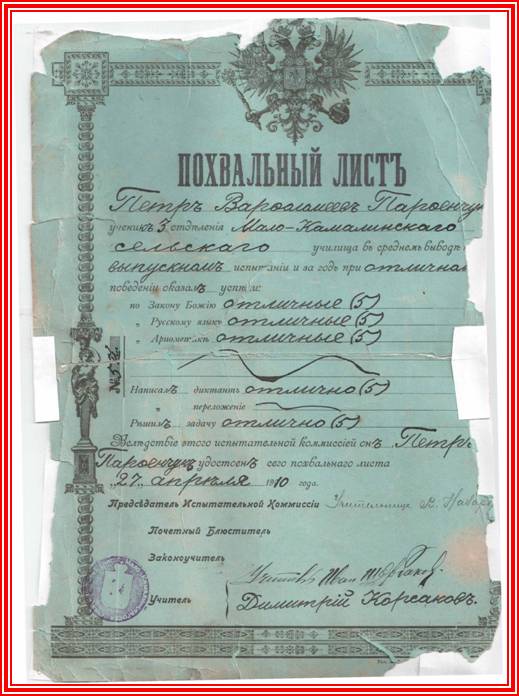 ПОХВАЛЬНЫЙ ЛИСТЪ
Петръ Варѳоломеевъ Парѳенчук
ученикъ 3 отдѣленія Мало-Камалинскаго
сельскаго училища въ среднемъ выводѣ
выпускномъ испытаніи и за годъ при отличномъ
поведеніи оказалъ успѣхи:
по Закону Божію отличные (5)
„ Русскому языку отличные (5)
„ Ариѳметикѣ отличные (5)
№
Написалъ диктантъ отлично (5)
„ переложеніе
Рѣшилъ задачу отлично (5)
Вслѣдствіе этого испытательной коммиссіей онъ, Петръ
Парѳенчукъ удостоенъ сего похвальнаго листа
„27„ апрѣля 1910 года.
Предсѣдатель Испытательной Коммиссіи Учительница
Почетный Блюститель
Законоучитель
Учитель Димитрій Корсаковъ.